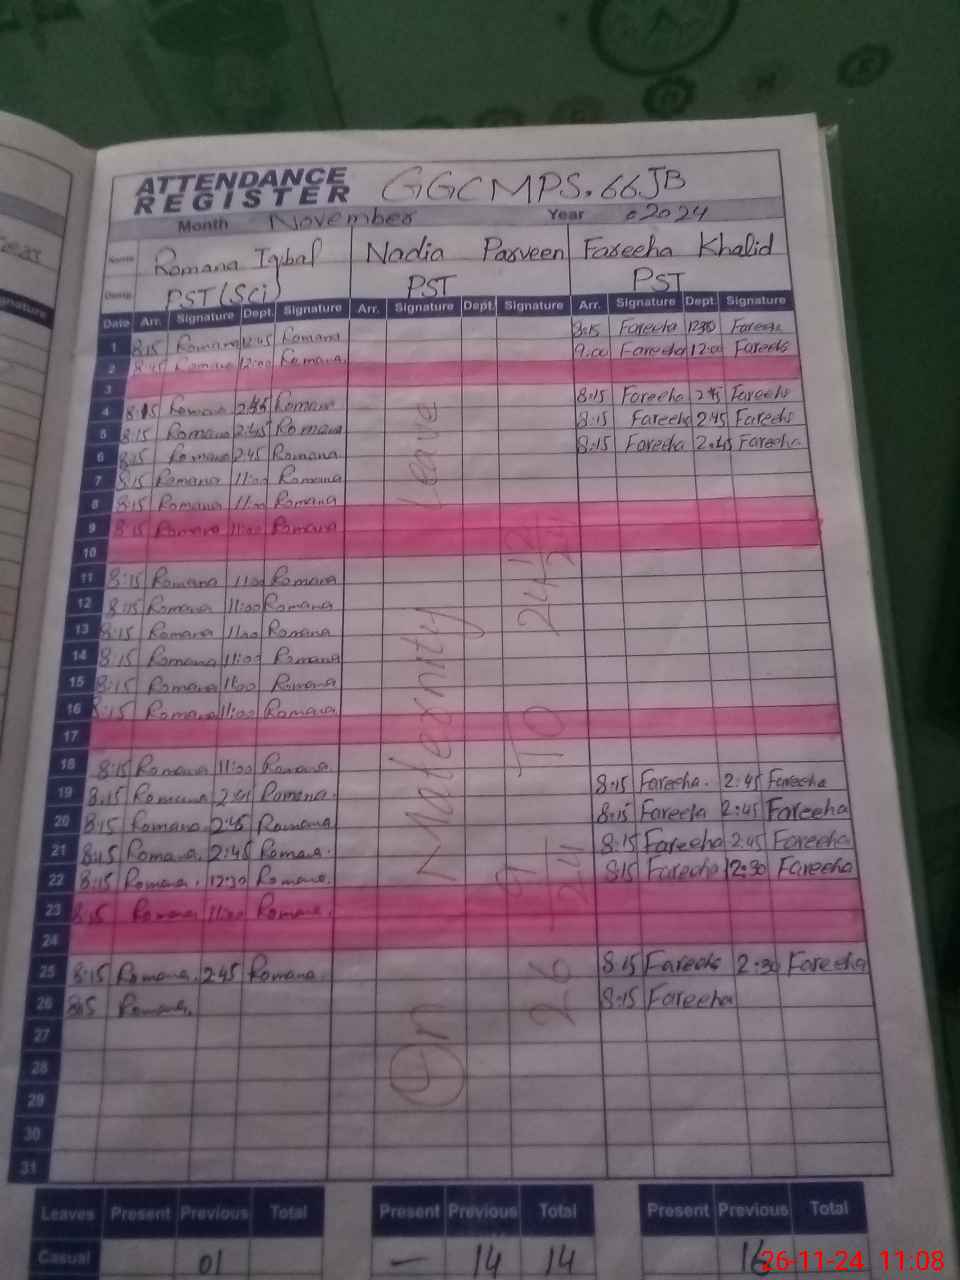 ATTENDANCE REGISTER GGCMPS.66JB
Month November Year 2024
Name Romana Iqbal Nadia Parveen Fareeha Khalid
Desig. PST(Sci) PST PST
Date Arr. Signature Dept. Signature Arr. Signature Dept. Signature Arr. Signature Dept. Signature
1 8:15 Romana 12:45 Romana 8:15 Fareeha 12:30 Fareeha
2 8:45 Romana 12:00 Romana 9:00 Fareeha 12:00 Fareeha
3
4 8:15 Romana 2:45 Romana 8:15 Fareeha 2:45 Fareeha
5 8:15 Romana 2:45 Romana 8:15 Fareeha 2:45 Fareeha
6 8:15 Romana 2:45 Romana 8:15 Fareeha 2:45 Fareeha
7 8:15 Romana 11:00 Romana
8 8:15 Romana 11:00 Romana
9 8:15 Romana 11:00 Romana
10
11 8:15 Romana 11:00 Romana
12 8:15 Romana 11:00 Romana
13 8:15 Romana 11:00 Romana
14 8:15 Romana 11:00 Romana
15 8:15 Romana 11:00 Romana
16 8:15 Romana 11:00 Romana
17
18 8:15 Romana 11:00 Romana
19 8:15 Romana Romana. 8:15 Fareeha. 2:45 Fareeha
20 8:15 Romana 2:45 Romana 8:15 Fareeha 2:45 Fareeha
21 8:15 Romana. 2:45 Romana. 8:15 Fareeha 2:45 Fareeha
22 8:15 Romana. 12:30 Romana. 8:15 Fareeha 12:30 Fareeha
23 8:15 Romana 11:00 Romana.
24
25 8:15 Romana. 2:45 Romana. 8:15 Fareeha 2:30 Fareeha
26 8:15 Romana. 8:15 Fareeha
27
28
29
30
31
On Maternity Leave
26 To
Leaves Present Previous Total Present Previous Total Present Previous Total
Casual 01 — 14 14 16
26-11-24 11:08